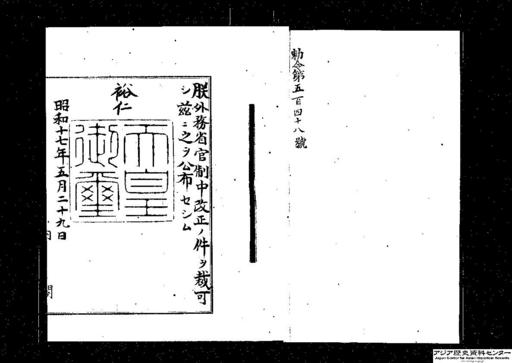 勅令第五百四十八號
朕外務省官制中改正ノ件ヲ裁可
シ茲ニ之ヲ公布セシム
裕仁
天皇御璽
昭和十七年五月二十九日
アジア歴史資料センター
Japan Center for Asian Historical Records